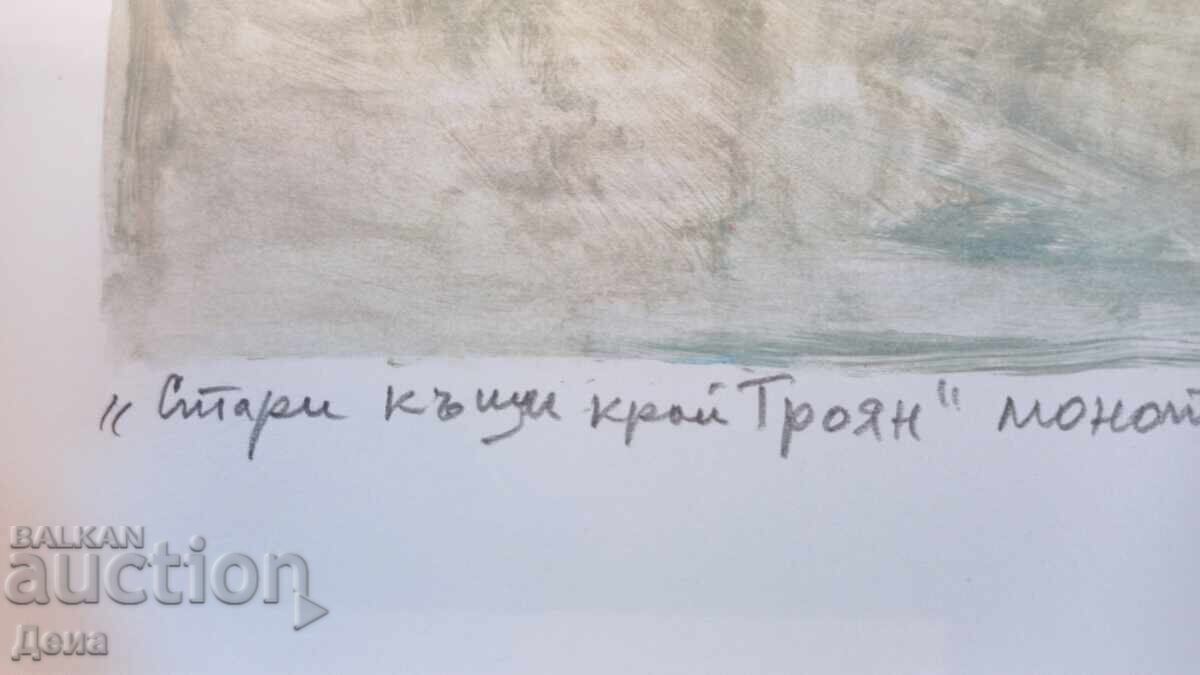 „Стари къщи край Троян" монот
BALKAN
auction
Деиа